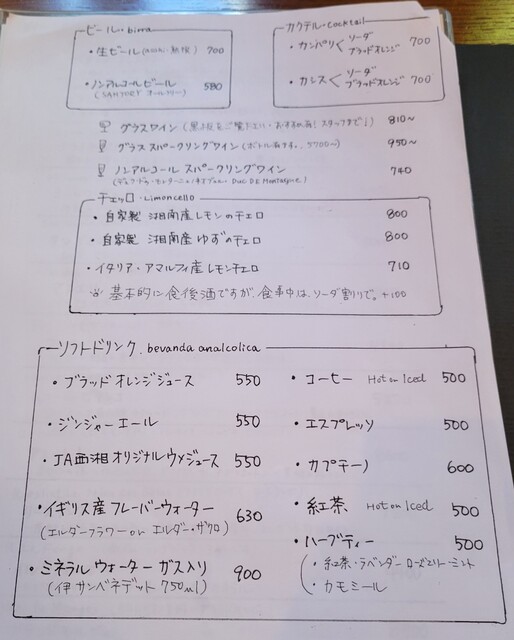 ビール・birra
・生ビール 700
・ノンアルコールビール 580
(SANTORY オールフリー)
カクテル・cocktail
・カンパリ ソーダ 700
ブラッドオレンジ
・カシス ソーダ 700
ブラッドオレンジ
グラスワイン (黒板をご覧下さい・おすすめ有! スタッフまで!) 810〜
グラス スパークリングワイン (ボトル有ます。5700〜) 950〜
ノンアルコール スパークリングワイン 740
(デュク・ドゥ・モンターニュ Duc DE Montagne)
チェッロ・Limoncello
・自家製 湘南産レモンのチェロ 800
・自家製 湘南産ゆずのチェロ 800
・イタリア・アマルフィ産レモンチェロ 710
基本的に食後酒ですが、食事中は、ソーダ割りで。+100
ソフトドリンク・bevanda analcolica
・ブラッドオレンジジュース 550
・ジンジャーエール 550
・JA西湘オリジナルウメジュース 550
・イギリス産フレーバーウォーター 630
(エルダーフラワー or エルダー・ザクロ)
・ミネラルウォーターガス入り 900
(伊 サンベネデット 750ml)
・コーヒー Hot or Iced 500
・エスプレッソ 500
・カプチーノ 600
・紅茶 Hot or Iced 500
・ハーブティー 500
・紅茶・ラベンダー ローズマリー・ミント
・カモミール